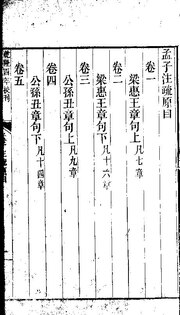 孟子注疏原目
卷一
梁惠王章句上凡七章
卷二
梁惠王章句下凡十六章
卷三
公孫丑章句上凡九章
卷四
公孫丑章句下凡十四章
卷五